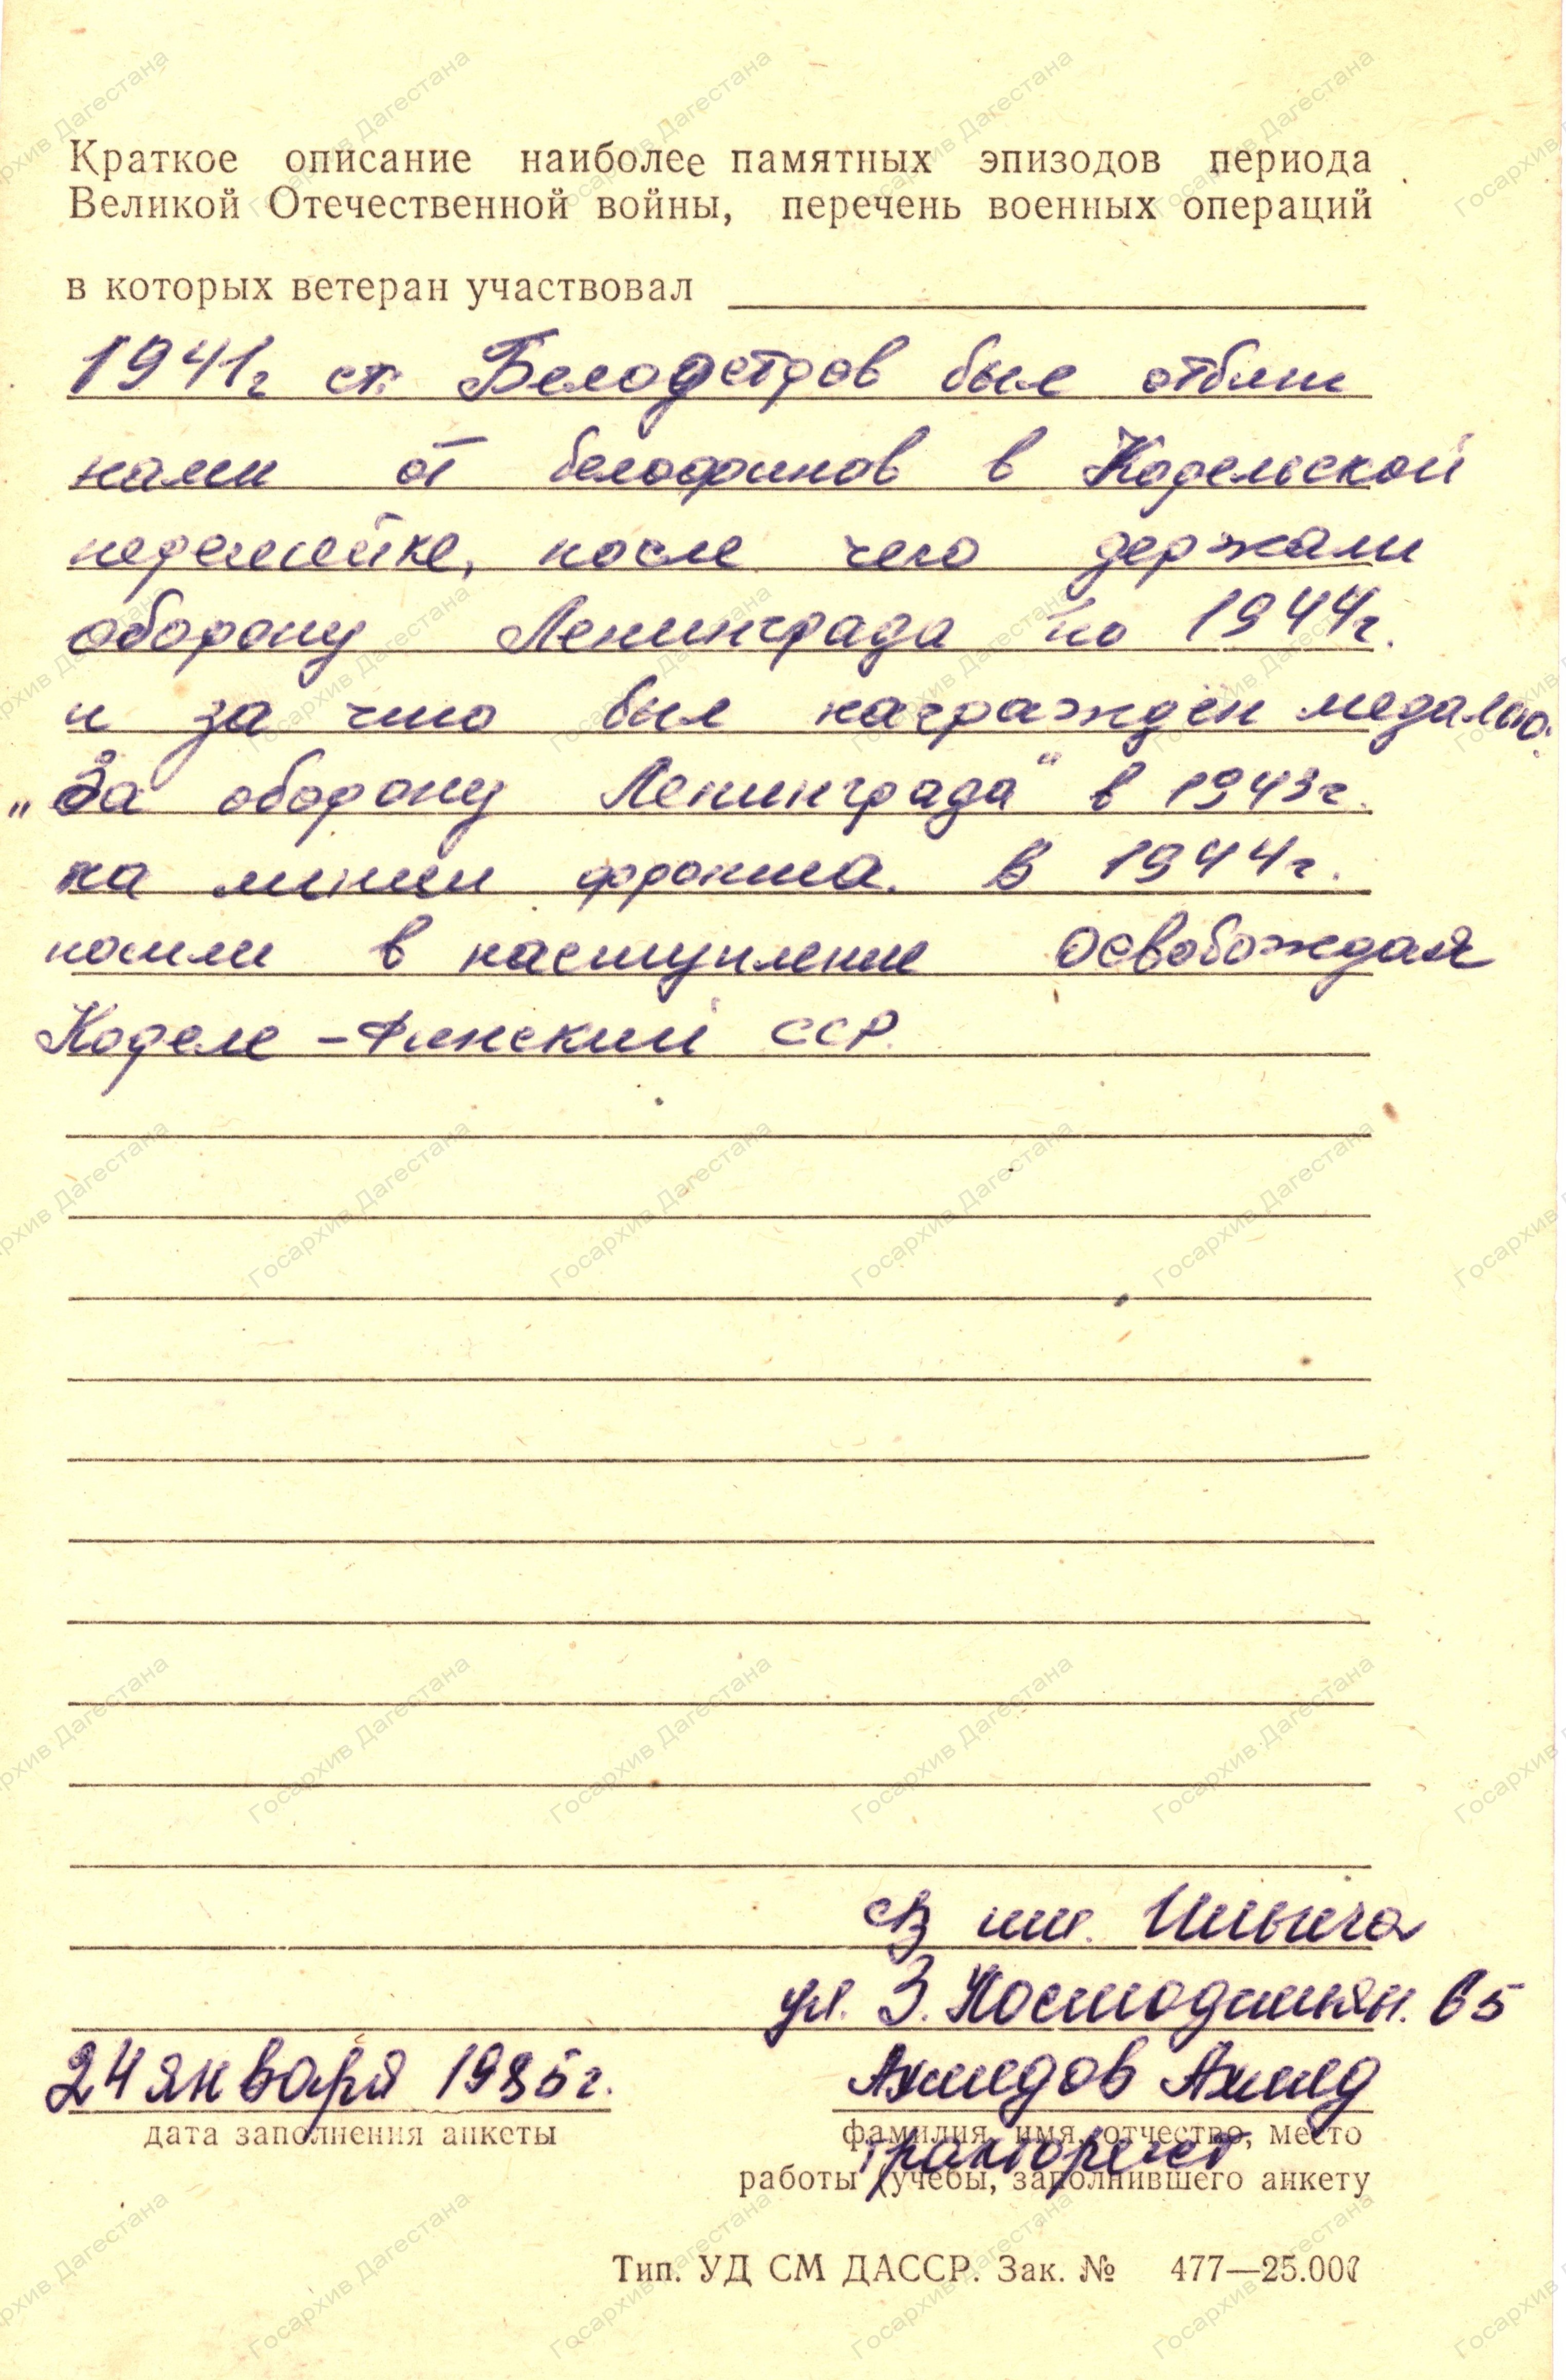 Краткое описание наиболее памятных эпизодов периода
Великой Отечественной войны, перечень военных операций
в которых ветеран участвовал
1941г ст. Белоостров был отбит
нами от белофинов в Корельской
перешейке, после чего держали
оборону Ленинграда по 1944г.
и за что был награжден медалью.
„За оборону Ленинграда" в 1943г.
на линии фронта. В 1944г.
пошли в наступление освобождая
Кореле-Финский ССР.
им. Ильича
ул. З. Космодемьян. 65
24 января 1985г. Ахмедов Ахмед
дата заполнения анкеты фамилия, имя, отчество, место
тракторист
работы (учебы, заполнившего анкету
Тип. УД СМ ДАССР. Зак. № 477—25.000
Госархив Дагестана